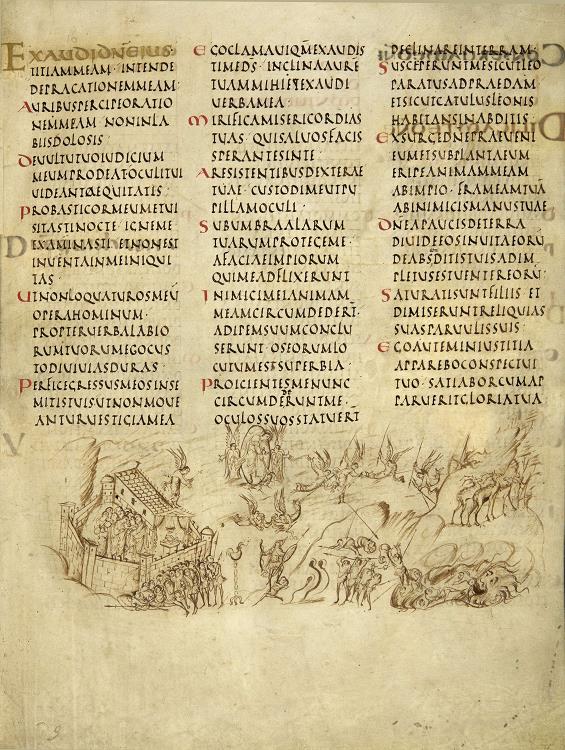 EXAUDI DÑE IUS
TITIAM MEAM · INTENDE
DEPRACATIONEM MEAM ·
AURIBUS PERCIPE ORATIO
NEM MEAM NON IN LA
BIIS DOLOSIS ·
DE UULTU TUO IUDICIUM
MEUM PRODEAT OCULI TUI
UIDEANT AEQUITATIS ·
PROBASTI COR MEUM ET UI
SITASTI NOCTE · IGNE ME
EXAMINASTI ET NON EST
INUENTA IN ME INIQUI
TAS ·
UT NON LOQUATUR OS MEŪ
OPERA HOMINUM ·
PROPTER UERBA LABIO
RUM TUORUM EGO CUS
TODIUI UIAS DURAS ·
PERFICE GRESSUS MEOS IN SE
MITIS TUIS UT NON MOUE
ANTUR UESTIGIA MEA
EGO CLAMAUI QM̄ EXAUDIS
TI ME DS̄ · INCLINA AURE
TUAM MIHI ET EXAUDI
UERBA MEA ·
MIRIFICA MISERICORDIAS
TUAS · QUI SALUOS FACIS
SPERANTES IN TE ·
A RESISTENTIBUS DEXTERAE
TUAE · CUSTODI ME UT PU
PILLAM OCULI ·
SUB UMBRA ALARUM
TUARUM PROTEGE ME ·
A FACIAE IMPIORUM
QUI ME ADFLIXERUNT
INIMICI MEI ANIMAM
MEAM CIRCUMDEDERT̄ ·
ADIPEM SUUM CONCLU
SERUNT · OS EORUM LO
CUTUM EST SUPERBIA ·
PROICIENTES ME NUNC
CIRCUMDEDERUNT ME ·
OCULOS SUOS STATUERT̄
DECLINARE IN TERRAM ·
SUSCEPERUNT ME SICUT LEO
PARATUS AD PRAEDAM
ET SICUT CATULUS LEONIS
HABITANS IN ABDITIS ·
EXSURGE DNE PRAEUENI
EUM ET SUBPLANTA EUM
ERIPE ANIMAM MEAM
AB IMPIO · FRAMEAM TUĀ
AB INIMICIS MANUS TUAE
DNE A PAUCIS DE TERRA
DIUIDE EOS IN UITA EORŪ
DE ABSCONDITIS TUIS ADIM
PLETUS EST UENTER EORŪ ·
SATURATI SUNT FILIIS ET
DIMISERUNT RELIQUIAS
SUAS PARUULIS SUIS ·
EGO AUTEM IN IUSTITIA
APPAREBO CONSPECTUI
TUO · SATIABOR CUM AP
PARUERIT GLORIA TUA